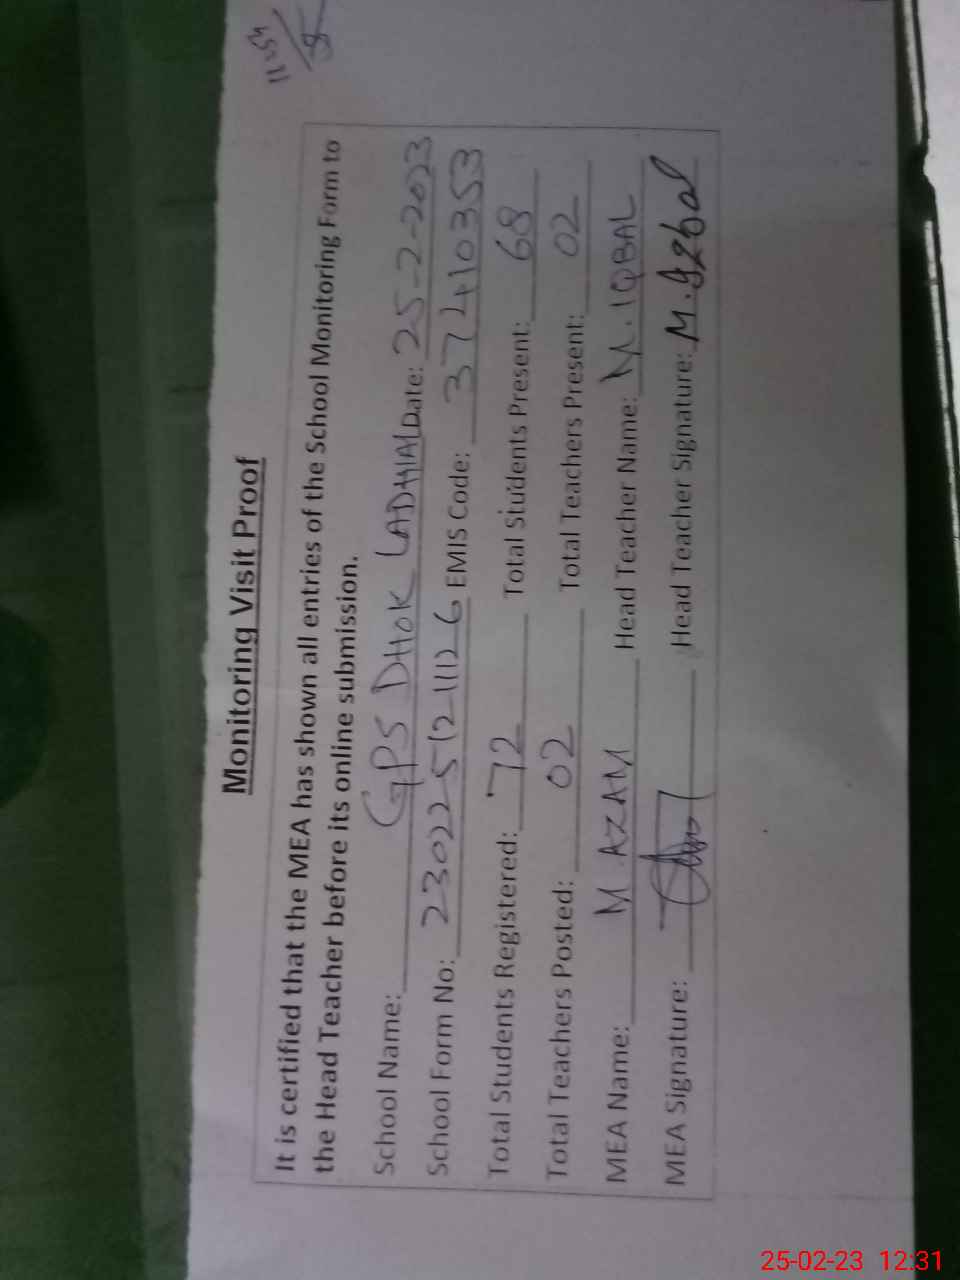 11:54
Monitoring Visit Proof
It is certified that the MEA has shown all entries of the School Monitoring Form to
the Head Teacher before its online submission.
School Name: GPS DHOK LADHIAL Date: 25-2-2023
School Form No: 230225121112 6 EMIS Code: 37410353
Total Students Registered: 72 Total Students Present: 68
Total Teachers Posted: 02 Total Teachers Present: 02
MEA Name: M. AZAM Head Teacher Name: M. IQBAL
MEA Signature: Head Teacher Signature: M. Iqbal
25-02-23 12:31